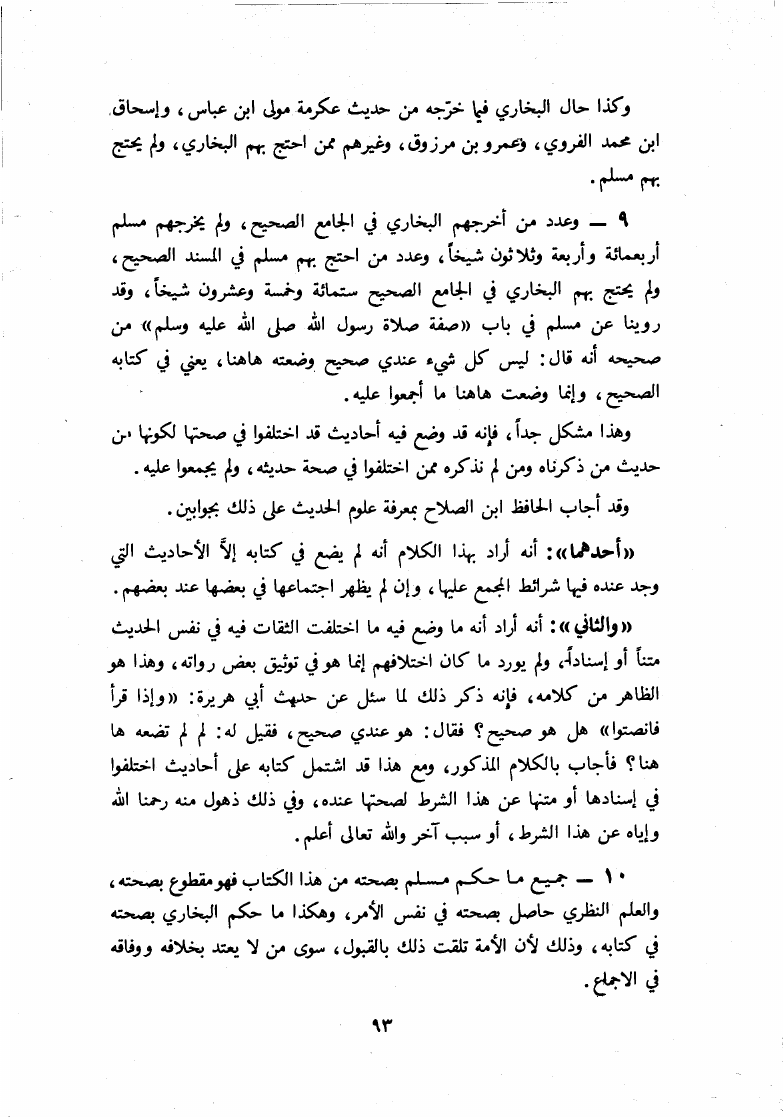 وكذا حال البخاري فيما خرّجه من حديث عكرمة مولى ابن عباس، وإسحاق
ابن محمد الفروي، وعمرو بن مرزوق، وغيرهم ممن احتج بهم البخاري، ولم يحتج
بهم مسلم.
٩ – وعدد من أخرجهم البخاري في الجامع الصحيح، ولم يخرجهم مسلم
أربعمائة وأربعة وثلاثون شيخاً، وعدد من احتج بهم مسلم في المسند الصحيح،
ولم يحتج بهم البخاري في الجامع الصحيح ستمائة وخمسة وعشرون شيخاً، وقد
روينا عن مسلم في باب «صفة صلاة رسول الله صلى الله عليه وسلم» من
صحيحه أنه قال: ليس كل شيء عندي صحيح وضعته هاهنا، يعني في كتابه
الصحيح، وإنما وضعت هاهنا ما أجمعوا عليه.
وهذا مشكل جداً، فإنه قد وضع فيه أحاديث قد اختلفوا في صحتها لكونها من
حديث من ذكرناه ومن لم نذكره ممن اختلفوا في صحة حديثه، ولم يجمعوا عليه.
وقد أجاب الحافظ ابن الصلاح بمعرفة علوم الحديث على ذلك بجوابين.
«أحدهما»: أنه أراد بهذا الكلام أنه لم يضع في كتابه إلاَّ الأحاديث التي
وجد عنده فيها شرائط المجمع عليها، وإن لم يظهر اجتماعها في بعضها عند بعضهم.
«والثاني»: أنه أراد أنه ما وضع فيه ما اختلفت الثقات فيه في نفس الحديث
متناً أو إسناداً، ولم يورد ما كان اختلافهم إنما هو في توثيق بعض رواته، وهذا هو
الظاهر من كلامه، فإنه ذكر ذلك لما سئل عن حديث أبي هريرة: «وإذا قرأ
فانصتوا» هل هو صحيح؟ فقال: هو عندي صحيح، فقيل له: لم لم تضعه ها
هنا؟ فأجاب بالكلام المذكور، ومع هذا قد اشتمل كتابه على أحاديث اختلفوا
في إسنادها أو متنها عن هذا الشرط لصحتها عنده، وفي ذلك ذهول منه رحمنا الله
وإياه عن هذا الشرط، أو سبب آخر والله تعالى أعلم.
١٠ – جميع ما حكم مسلم بصحته من هذا الكتاب فهو مقطوع بصحته،
والعلم النظري حاصل بصحته في نفس الأمر، وهكذا ما حكم البخاري بصحته
في كتابه، وذلك لأن الأمة تلقت ذلك بالقبول، سوى من لا يعتد بخلافه ووفاقه
في الاجماع.
٩٣